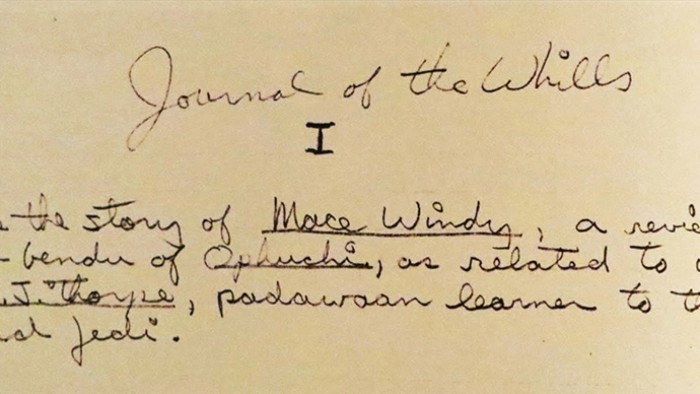 Journal of the Whills
I
the story of Mace Windy, a revie
bendu of Ophuchi, as related to
J. Thorpe, padawaan learner to t
Jedi.